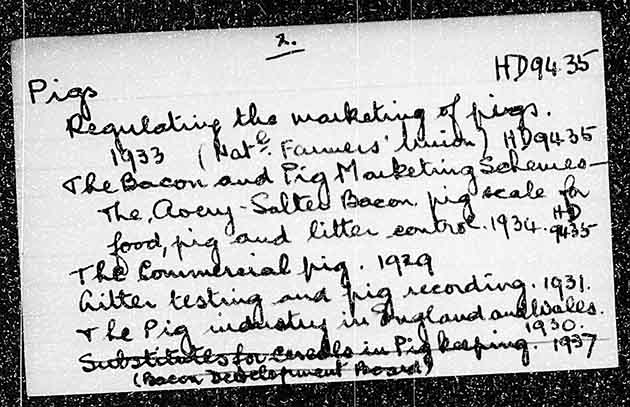 2.
HD9435
Pigs
Regulating the marketing of pigs.
1933 (Natl. Farmers' Union) HD9435
The Bacon and Pig Marketing Schemes—
The Avery-Salter Bacon pig scale for
food, pig and litter control. 1934. HD 9435
The Commercial pig. 1929
Litter testing and pig recording. 1931.
The Pig industry in England and Wales.
1930.
Substitutes for cereals in Pig keeping. 1937
(Bacon Development Board)